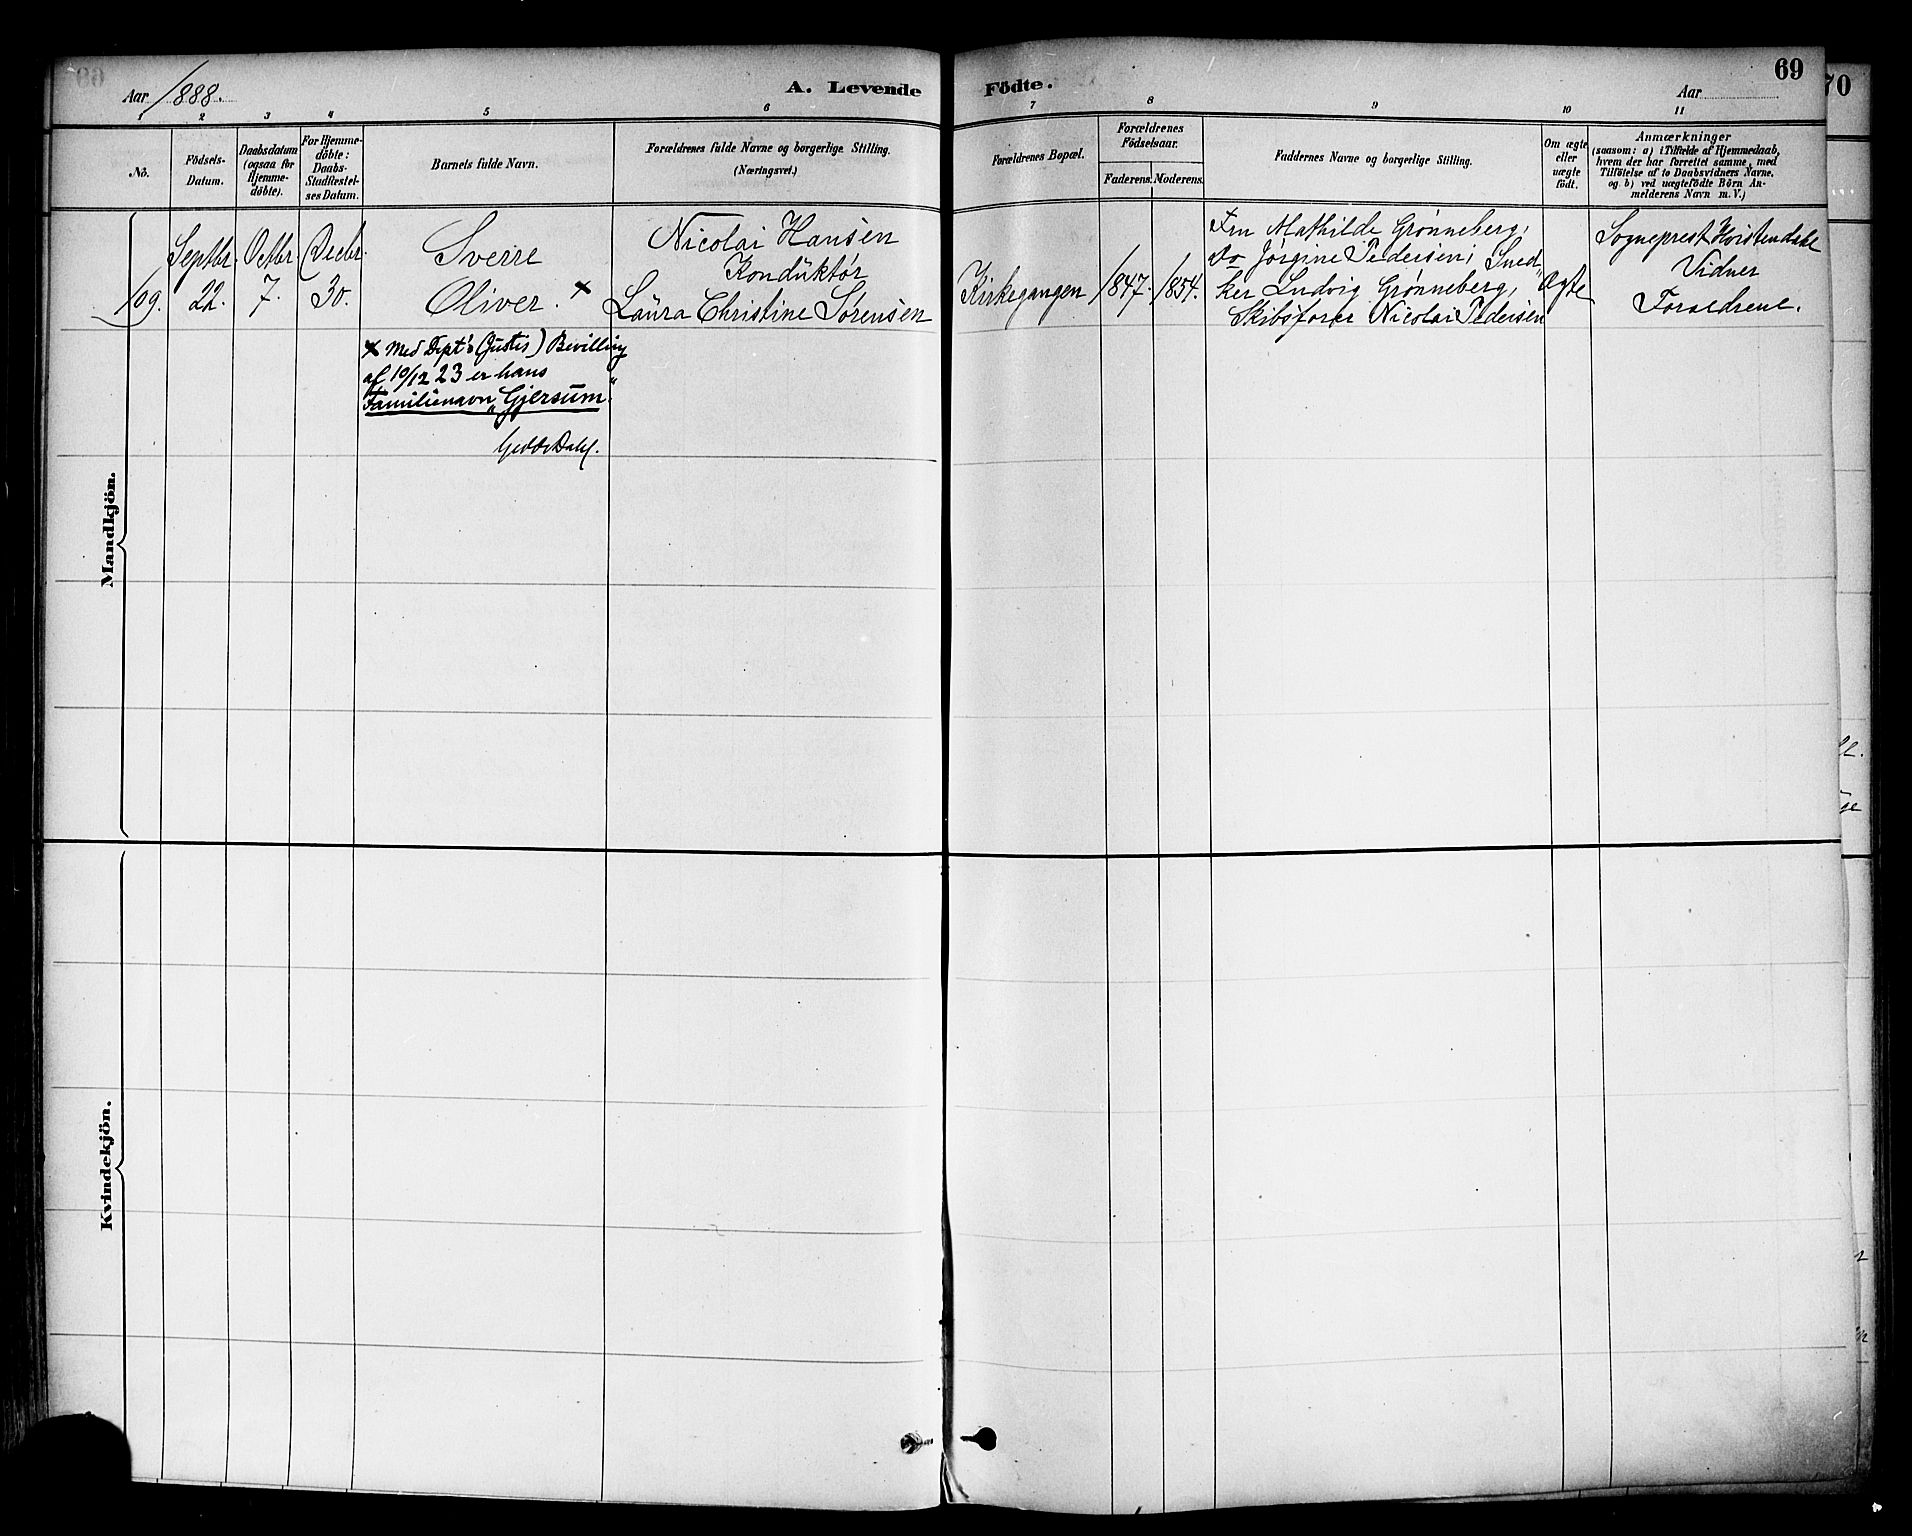 69
70
Aar 1888.
A. Levende
Födte.
Aar
1
2
3
4
5
6
7
8
9
10
11
No.
Födsels-
Datum.
Daabsdatum
(ogsaa for
Hjemme-
döbte).
For Hjemme-
döbte:
Daabs-
Stadfæstel-
ses Datum.
Barnets fulde Navn.
Forældrenes fulde Navne og borgerlige Stilling.
(Næringsvei.)
Forældrenes Bopæl.
Forældrenes
Födselsaar.
Faderens.
Moderens.
Faddernes Navne og borgerlige Stilling.
Om ægte
eller
uægte
födt.
Anmærkninger
(saasom: a) i Tilfælde af Hjemmedaab,
hvem der har forrettet samme, med
Tilföielse af to Daabsvidners Navne,
og b) ved uægtefödte Börn An-
melderens Navn m. V.)
Mandkjön.
109.
Septbr.
22.
Octbr.
7.
Decbr.
30.
Sverre
Oliver. x
Nicolai Hansen
Konduktør
Laura Christine Sørensen
Kirkegangen
1847.
1854.
Fru Mathilde Grønneberg,
do Jørgine Pedersen; Sned„
ker Ludvig Grønneberg,
Skibsfører Nicolai Pedersen
Ægte
Sogneprest Hvistendahl
Vidner
Forældrene.
x Med Dept's (Justis) Bevilling
af 10/12 23 er hans
Familienavn „Gjersum."
Kvindekjön.